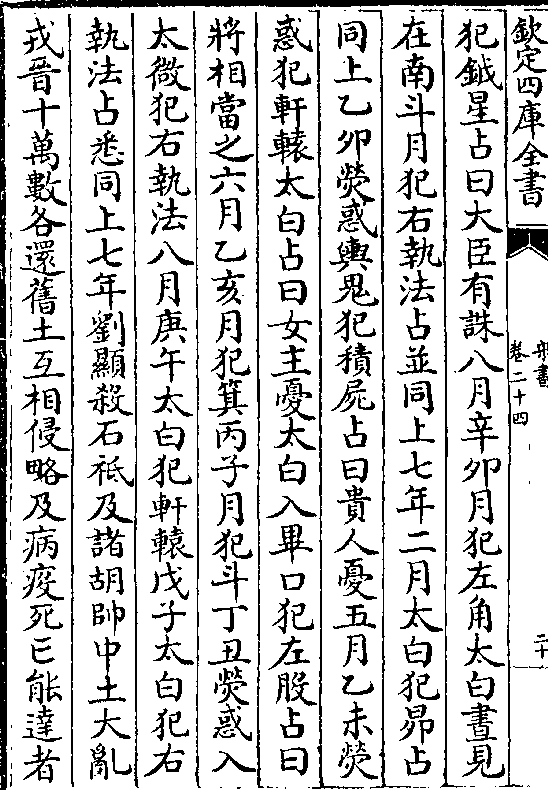 欽定四庫全書
卷二十四
二十
犯鉞星占曰大臣有誅八月辛卯月犯左角太白晝見
在南斗月犯右執法占並同上七年二月太白犯昴占
同上乙卯熒惑輿鬼犯積屍占曰貴人憂五月乙未熒
惑犯軒轅太白占曰女主憂太白入畢口犯左股占曰
將相當之六月乙亥月犯箕丙子月犯斗丁丑熒惑入
太微犯右執法八月庚午太白犯軒轅戊子太白犯右
執法占悉同上七年劉顯殺石祗及諸胡帥中土大亂
戎晉十萬數各還舊土互相侵略及病疫死亡能達者